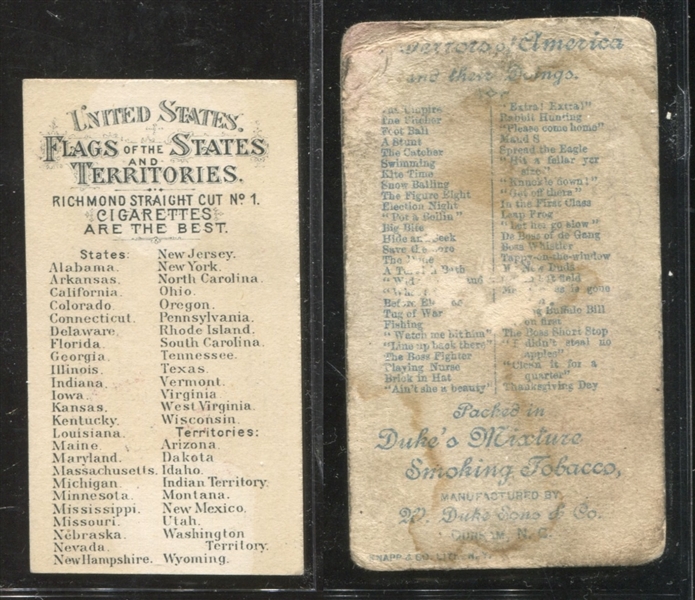 UNITED STATES.
FLAGS OF THE STATES
AND
TERRITORIES.
RICHMOND STRAIGHT CUT No 1.
CIGARETTES
ARE THE BEST.
States:
Alabama.
Arkansas.
California.
Colorado
Connecticut.
Delaware.
Florida.
Georgia.
Illinois.
Indiana.
Iowa.
Kansas.
Kentucky.
Louisiana.
Maine.
Maryland.
Massachusetts.
Michigan.
Minnesota.
Mississippi.
Missouri.
Nebraska.
Nevada.
New Hampshire.
New Jersey.
New York.
North Carolina.
Ohio.
Oregon.
Pennsylvania.
Rhode Island.
South Carolina.
Tennessee.
Texas.
Vermont.
Virginia
West Virginia.
Wisconsin.
Territories:
Arizona.
Dakota
Idaho.
Indian Territory.
Montana.
New Mexico.
Utah.
Washington
Territory.
Wyoming.
Terrors of America
and their Doings.
Umpire
The Pitcher
Foot Ball
A Stunt
The Catcher
Swimming
Kite Time
Snow Balling
The Figure Eight
Election Night
"Got a Bellin"
Big Bite
Hide and Seek
Save the
The
A Bath
"W
"Wh
Before
Tug of War
Fishing
"Watch me hit him"
"Line up back there"
The Boss Fighter
Playing Nurse
Brick in Hat
"Ain't she a beauty"
"Extra! Extra!"
Rabbit Hunting
"Please come home"
Maud S
Spread the Eagle
"Hit a fellar yer
size"
"Knuckle down!"
"Get off there"
In the First Class
Leap Frog
"Let her go slow"
De Boss of de Gang
Boss Whistler
Tappy-on-the-window
is gone
Buffalo Bill
on first
The Boss Short Stop
steal no
apples"
it for a
quarter"
Thanksgiving Day
Packed in
Duke's Mixture
Smoking Tobacco,
MANUFACTURED BY
W. Duke Sons & Co.
DURHAM, N. C.
KNAPP & CO. LITH. N.Y.